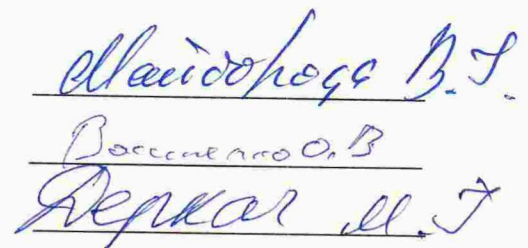 Майборода В.Г.
Василенко О.В
Деркач М.Г